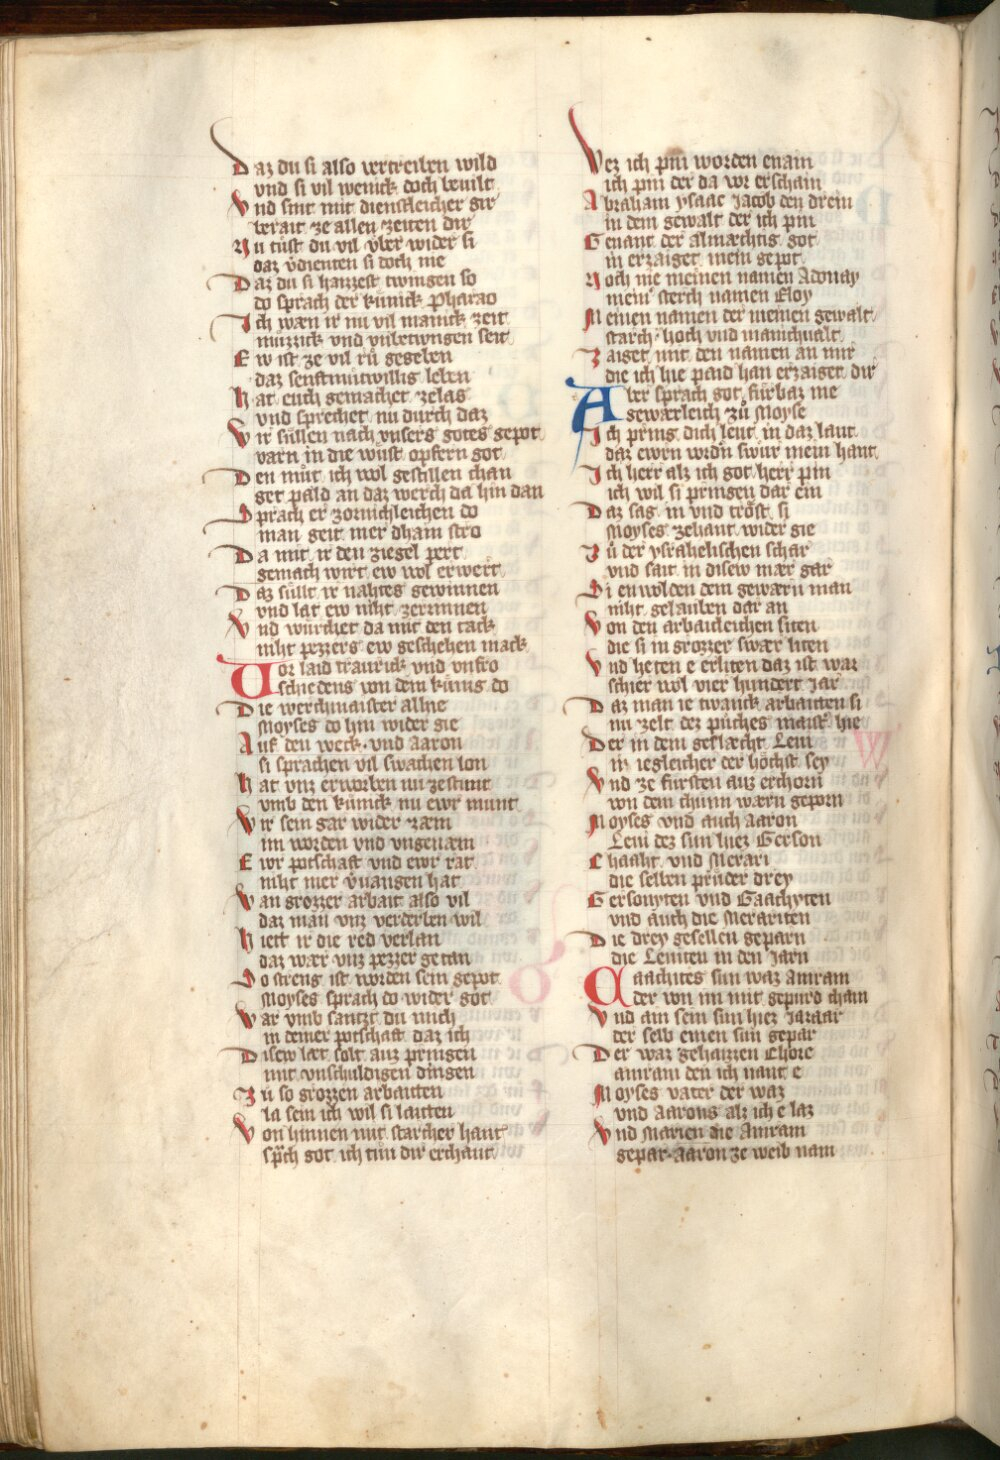 Daz du si also vertreiben wild
vnd si vil wenick doch bevilt
Vnd sint mit dienstleicher gir
berait ze allen zeiten dir
Nu tust du vil vber wider si
daz vdienten si doch nie
Daz du si haizzest twingen so
do sprach der kunick Pharao
Ich wæn ir nu vil manick zeit
muzzick vnd vnbetwngen seit
Ew ist ze vil rů gegeben
daz senftmutwillig leben
Hat euch gemachet zelas
vnd sprechet nu durch daz
Wir sullen nach vnsers gotes gepot
varn in die wůst opfern got
Den můt ich wol gestillen chan
get pald an daz werch da hin dan
Sprach er zornichleichen do
man geit mer dhain stro
Da mit ir den ziegel pert
gemach wirt ew wol erwert
Daz sullt ir nahtes gewinnen
vnd lat ew niht zerinnen
Vnd wurchet da mit den tack
niht pezzers ew geschehen mack
Vor laid traurick vnd vnfro
schiedens von dem kunig do
Die werchmaister allne
Moyses do hin wider gie
Auf den weck vnd Aaron
si sprachen vil swachen lon
Hat vnz erworben nu zestunt
vmb den kunick nu ewr munt
Wir sein gar wider zæm
im worden vnd vngenæm
Ewr potschaft vnd ewr rat
niht mer vuangen hat
Wan grozzer arbait also vil
daz man vnz verderben wil
Hiett ir die red verlan
daz wær vnz pezzer getan
So streng ist worden sein gepot
Moyses sprach do wider got
War vmb santzt du mich
in deiner potschaft daz ich
Disew læt solt auz pringen
mit vnschuldigen dingen
Zu so grozzen arbaitten
la sein ich wil si laitten
Von hinnen mit starcher hant
sprch got ich tun dir erchant
Wez ich pin worden enain
ich pin der da vor erschain
Abraham ysaac Jacob den drein
in dem gewalt der ich pin
Genant der almæchtig got
in erzaiget mein gepot
Noch nie meinen namen Adonay
mein sterch namen Eloy
Meinen namen der meinen gewalt
starch hoch vnd manichualt
Zaiget mit den namen an mir
die ich hie paid han erzaiget dir
Aber sprach got furbaz me
gewærleich zů Moyse
Ich pring dich leut in daz lant
daz ewrn vordn swur mein hant
Ich herr alz ich got herr pin
ich wil si pringen dar ein
Daz sag in vnd trőst si
Moyses zehant wider gie
Zů der ysrahelischen schar
vnd sait in disew mær gar
Si enwolden dem gewærn man
niht gelauben dar an
Von den arbaitleichen siten
die si in grozzer swær liten
Vnd heten e erliten daz ist war
schier wol vier hundert Jar
Daz man ie twanck arbaitten si
nu zelt dez půches maistr hie
Der in dem geslæcht Leui
in iegleicher der hőchst sey
Vnd ze fursten auz erchorn
von dem chunn wærn geporn
Moyses vnd auch Aaron
Leui dez sun hiez Gerson
Chaaht vnd Merari
die selben průder drey
Gersonyten vnd Gaachyten
vnd auch die Merariten
Die drey gesellen geparn
die Leuiten in den Jarn
Caachites sun waz Amram
der von im mit gepurd cham
Vnd ain sein sun hiez Jazaar
der selb einen sun gepar
Der waz gehaizzen Chore
amram den ich nant e
Moyses vater der waz
vnd Aarons alz ich e laz
Vnd Marien die Amram
gepar Aaron ze weib nam